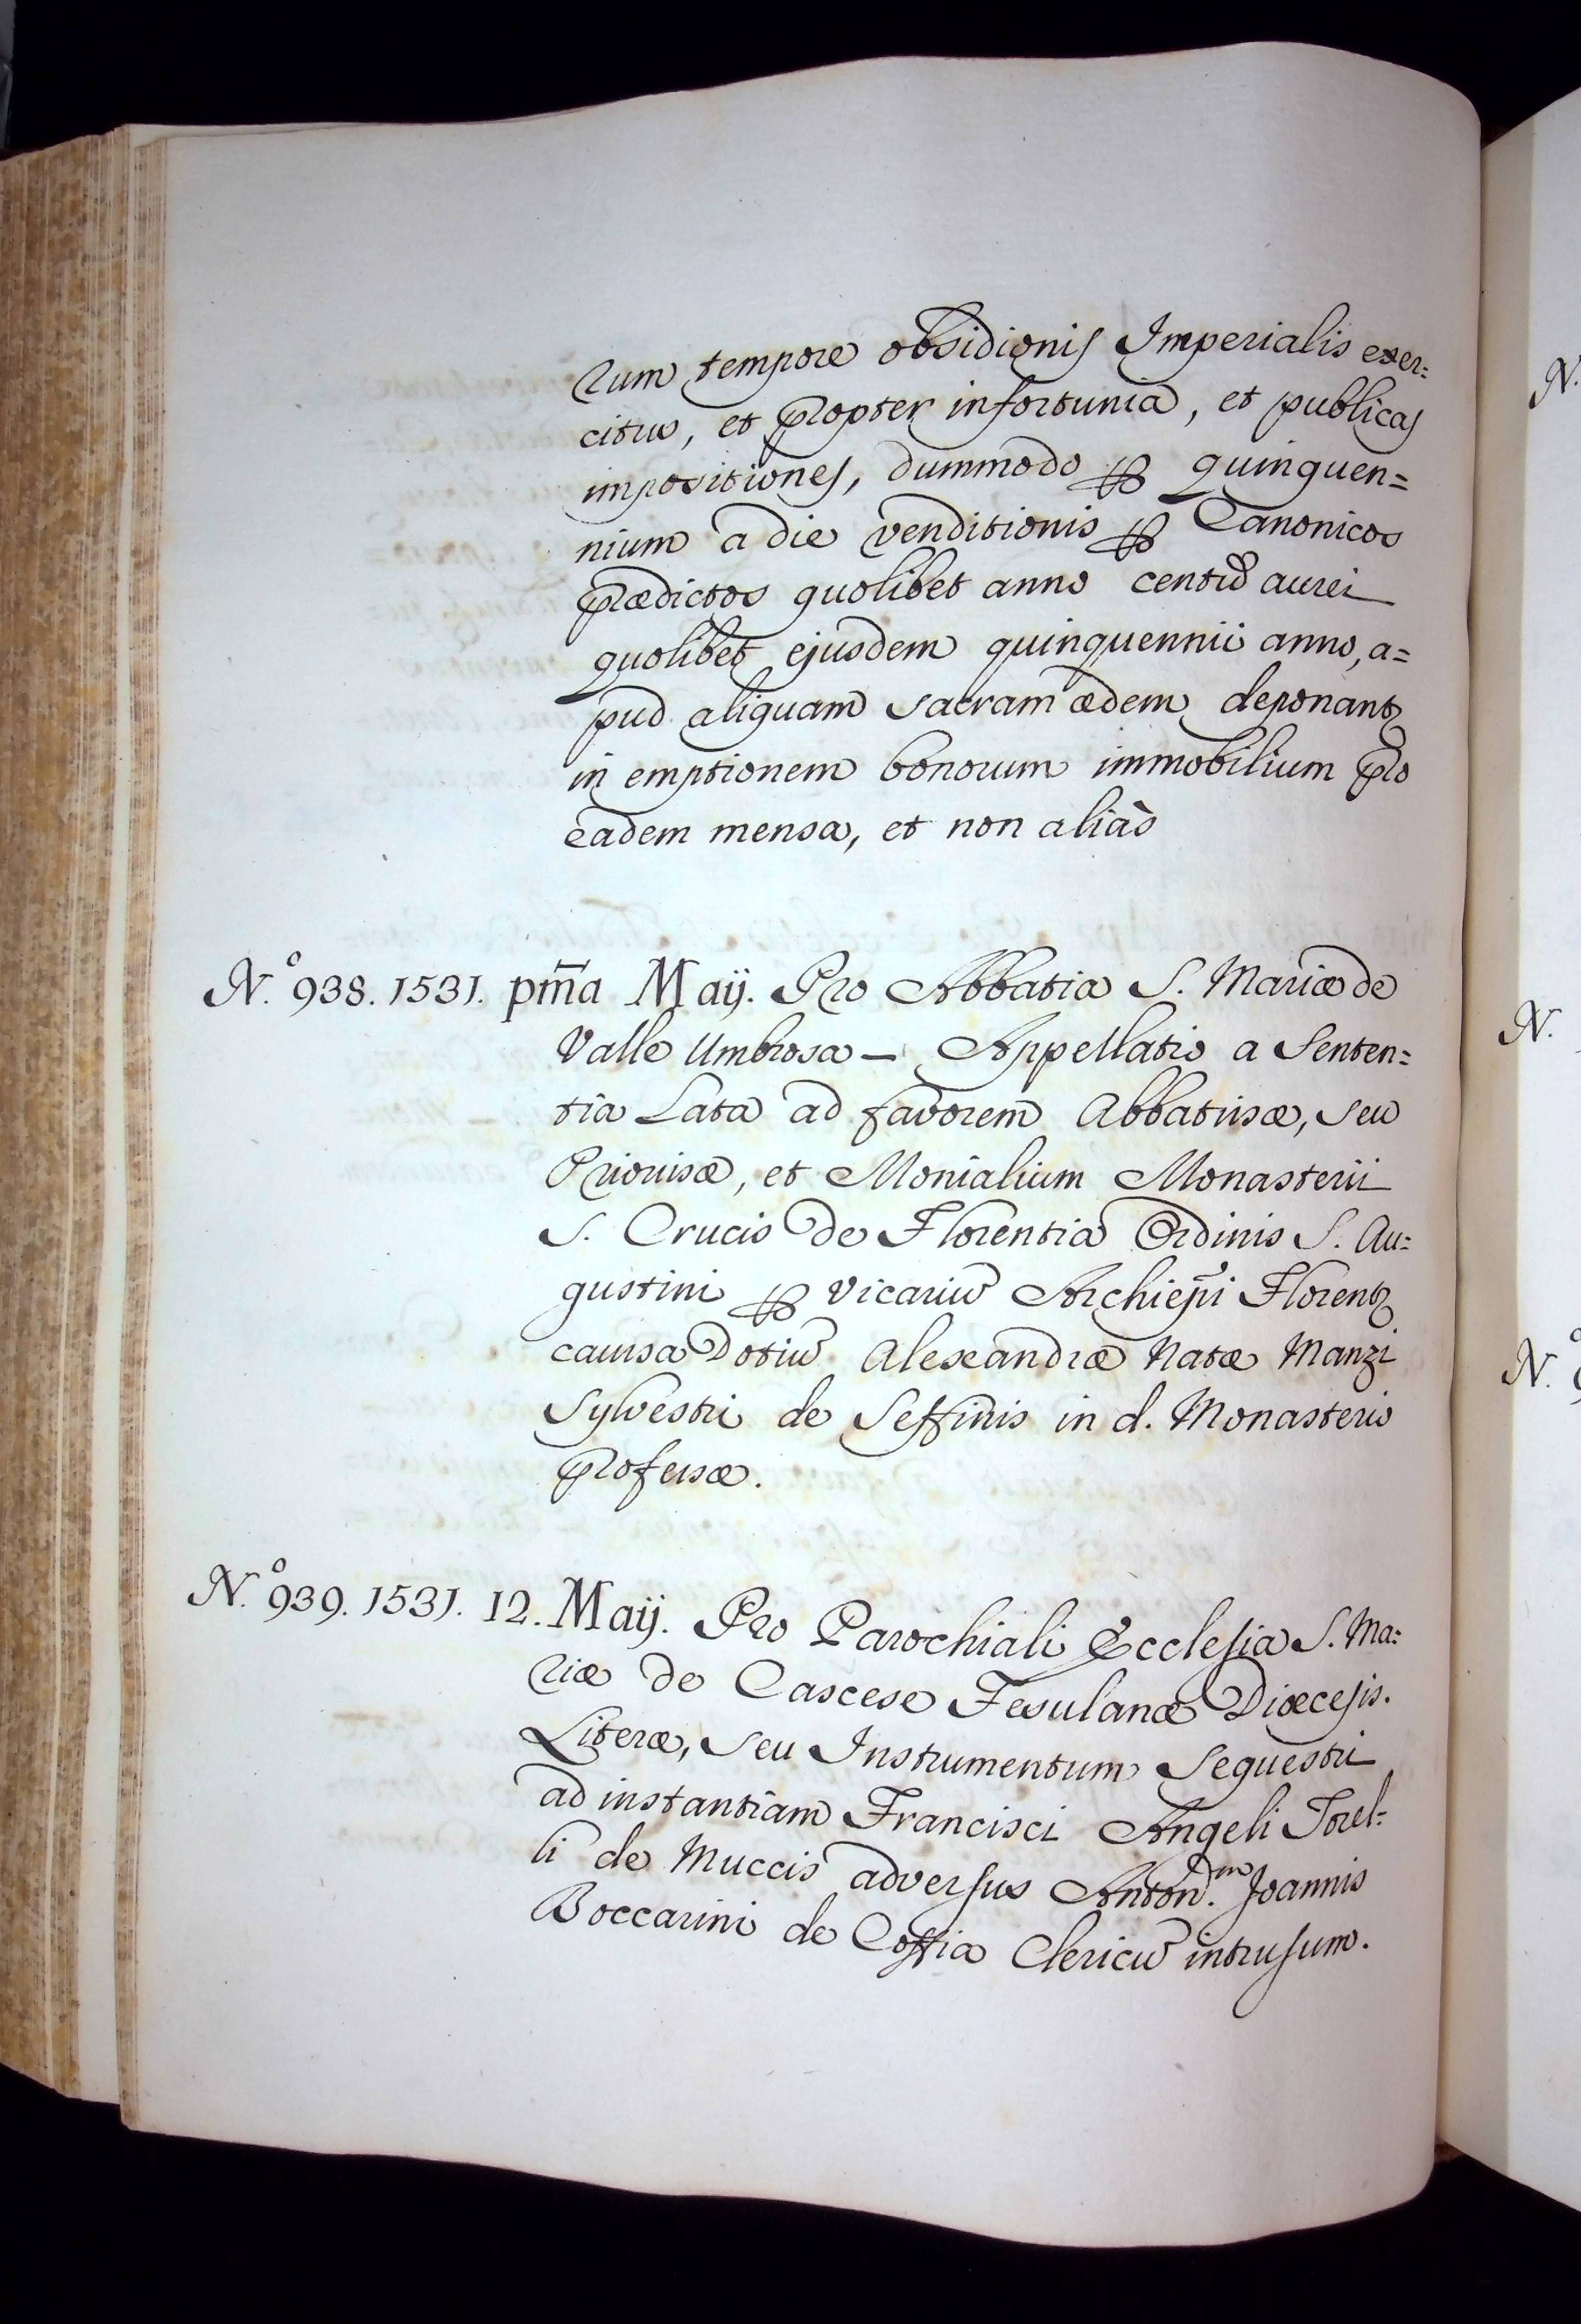 rum tempore obsidionis Imperialis exer=
citus, et propter infortunia, et publicas
impositiones, dummodo ꝑ quinquen=
nium a die venditionis ꝑ Canonicos
prædictos quolibet anno centũ aurei
quolibet ejusdem quinquennii anno, a=
pud aliquam sacram ædem deponant
in emptionem bonorum immobilium pro
eadem mensa, et non aliàs
N.º 938. 1531. pm̃a Maij. Pro Abbatia S. Mariæ de
Valle Umbrosa – Appellatio a Senten=
tia Lata ad favorem Abbatissæ, seu
Priorissæ, et Monialium Monasterii
S. Crucis de Florentia Ordinis S. Au=
gustini ꝑ Vicariũ Archiep̃i Florent
caussa Dotiũ Alexandræ Natæ Manzi
Sylvestri de Seffinis in d. Monasterio
professæ.
N.º 939. 1531. 12. Maij. Pro Parochiali Ecclesia S. Ma=
riæ de Cascese Fesulanæ Diœcesis.
Literæ, seu Instrumentum Sequestri
ad instantiam Francisci Angeli Torel=
li de Muccis adversus Anton.m Joannis
Boccarini de Coffia Clericũ intrusum.
N.
N.
N.º